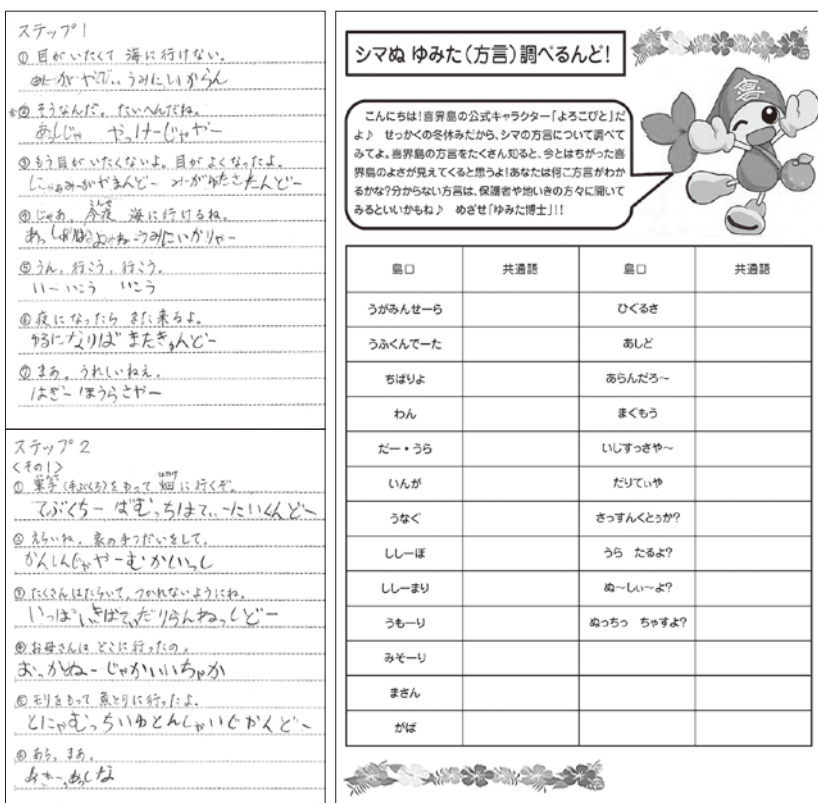 ステップ1
① 目がいたくて 海に行けない。
うみにいからん
② そうなんだ。たいへんだね。
あっしじゃ やっけーじゃやー
③ もう目がいたくないよ。目がよくなったよ。
④ じゃあ、今夜 海に行けるね。
こんや
うみにいかりゃー
⑤ うん、行こう、行こう。
いーいこう いこう
⑥ 夜になったら また来るよ。
ゆるになりば またきゅんどー
⑦ まあ、うれしいねえ。
はぎー ほうらさやー
ステップ2
<その1>
① 軍手(手ぶくろ)をもって 畑に行くぞ。
はたけ
てぶくちー ばむっちはてぃーにいくんどー
② えらいね、家の手つだいをして。
かんしんじゃやー
③ たくさんはたらいて、つかれないようにね。
④ お母さんは どこに行ったの。
おっかぬー じゃかいいちゃか
⑤ モリをもって 魚とりに行ったよ。
⑥ あら、まあ。
シマぬ ゆみた(方言)調べるんど!
こんにちは!喜界島の公式キャラクター「よろこびと」だ
よ♪ せっかくの冬休みだから、シマの方言について調べて
みてよ。喜界島の方言をたくさん知ると、今とはちがった喜
界島のよさが見えてくると思うよ!あなたは何こ方言がわか
るかな?分からない方言は、保護者や地いきの方々に聞いて
みるといいかもね♪ めざせ「ゆみた博士」!!
島口 共通語 島口 共通語
うがみんせーら ひぐるさ
うふくんでーた あしど
ちばりよ あらんだろ〜
わん まぐもう
だー・うら いじすっさや〜
いんが だりてぃや
うなぐ さっすんくとぅか?
ししーぼ うら たるよ?
ししーまり ぬ〜しぃ〜よ?
うもーり ぬっちっ ちゃすよ?
みそーり
まさん
がば